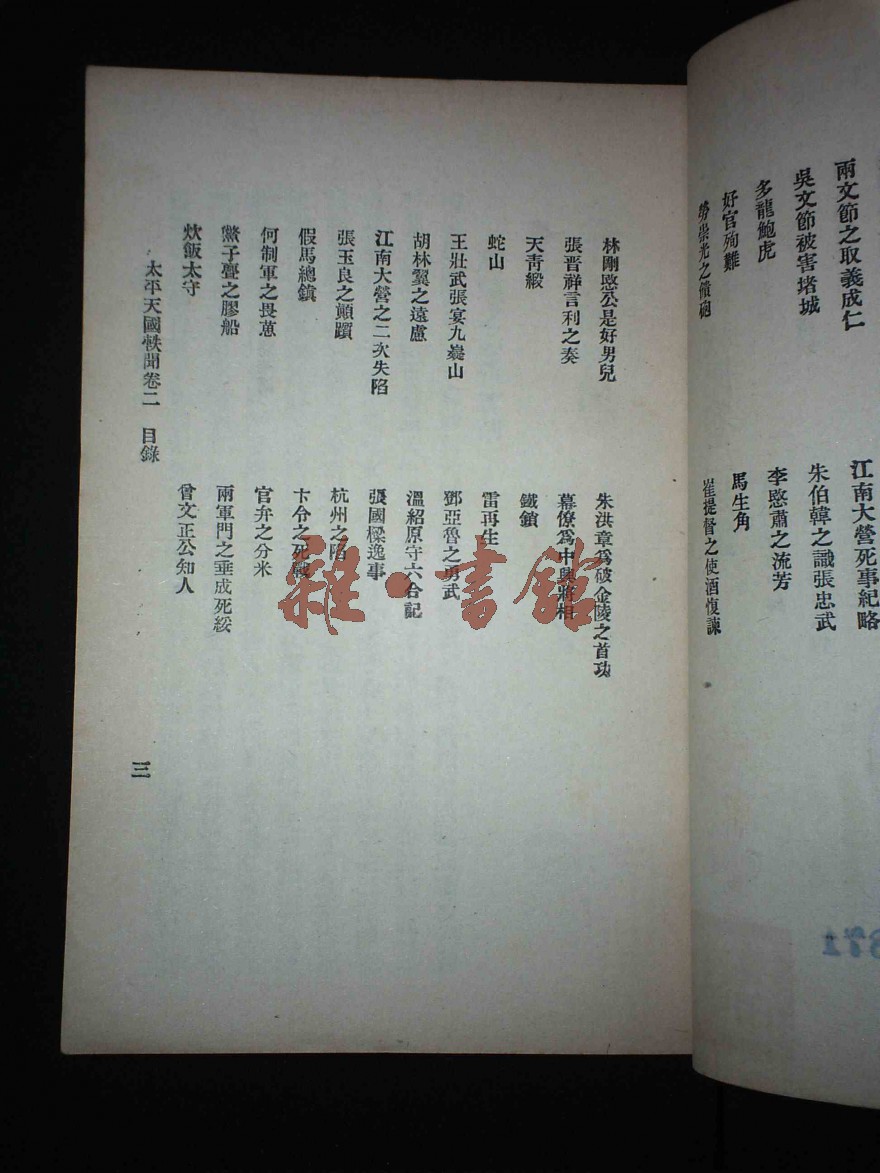 兩文節之取義成仁
江南大營死事紀略
吳文節被害堵城
朱伯韓之識張忠武
多龍鮑虎
李愍肅之流芳
好官殉難
馬生角
勞崇光之償砲
崔提督之使酒愎諫
林剛愍公是好男兒
朱洪章爲破金陵之首功
張晋祥言利之奏
幕僚爲中興將相
天青緞
鐵鎖
蛇山
雷再生
王壯武張宴九嶷山
鄧亞魯之勇武
胡林翼之遠慮
溫紹原守六合記
江南大營之二次失陷
張國樑逸事
張玉良之顚躓
杭州之陷
假馬總鎮
卞令之死戰
何制軍之畏葸
官弁之分米
鱉子亹之膠船
兩軍門之垂成死綏
炊飯太守
曾文正公知人
太平天國軼聞卷二 目錄
三
雜·書館
371